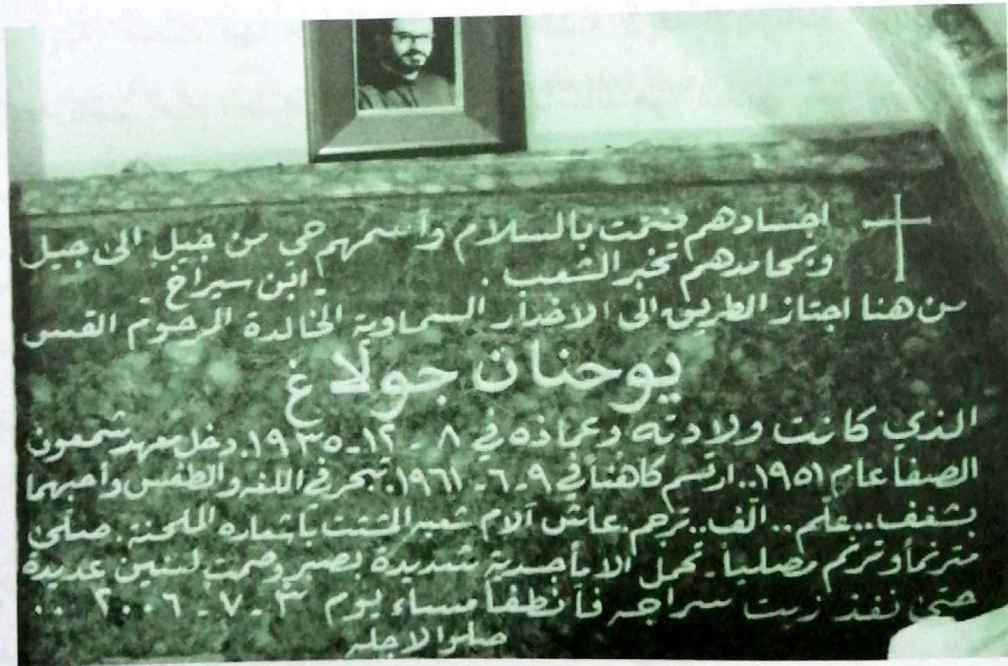 اجسادهم فتحت بالسلام وأسمهم حي من جيل الى جيل
وبمحامدهم تخبر الشعب . ابن سيراخ
من هنا اجتاز الطريق الى الاخدار السماوية الخالدة المرحوم القس
يوحنان جولاغ
الذي كانت ولادته وعماذه في ٨ - ١٢ - ١٩٣٥. دخل معهد شمعون
الصفا عام ١٩٥١.. ارتسم كاهناً في ٩ - ٦ - ١٩٦١. تبحر في اللغه والطقس واحبهما
بشغف.. علّم.. الّف.. ترجم. عاش آلام شعبه المشتت بأشعاره الملحنة. صلّى
مترنماً وترنم مصلياً. تحمل الاماً جسدية شديدة بصبر وصمت لسنين عديدة
حتى نفذ زيت سراجه فأنطفأ مساء يوم ٣ - ٧ - ٢٠٠٦ ..
صلوا لاجله